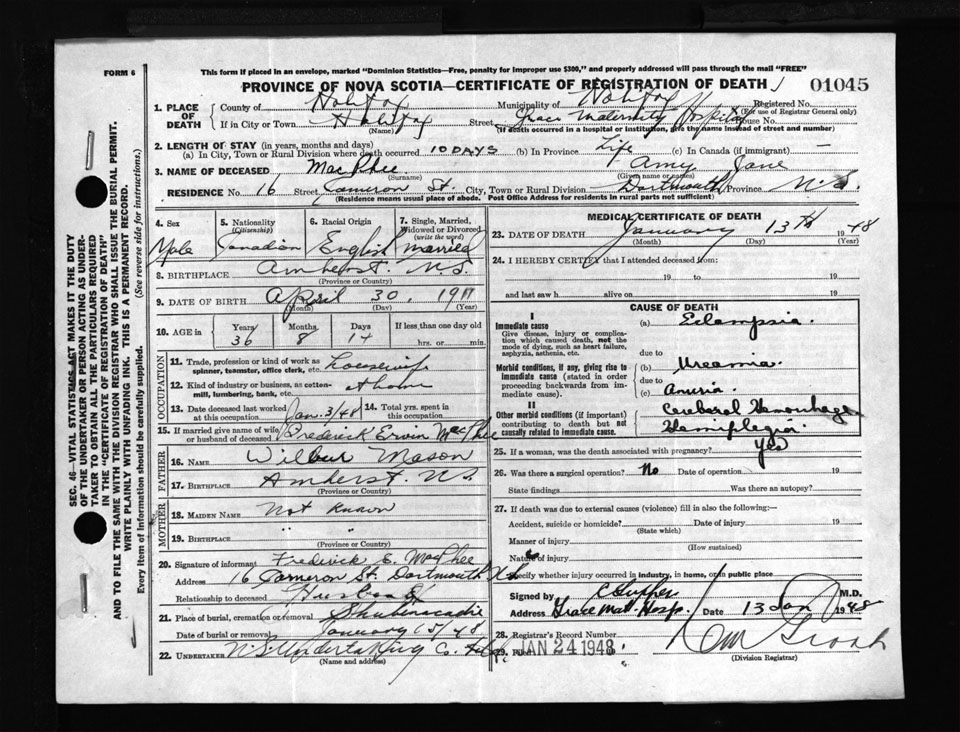 FORM 6
This form if placed in an envelope, marked "Dominion Statistics—Free, penalty for improper use $300," and properly addressed will pass through the mail "FREE"
PROVINCE OF NOVA SCOTIA—CERTIFICATE OF REGISTRATION OF DEATH
01045
SEC. 46—VITAL STATISTICS ACT MAKES IT THE DUTY
OF THE UNDERTAKER OR PERSON ACTING AS UNDER-
TAKER TO OBTAIN ALL THE PARTICULARS REQUIRED
IN THE "CERTIFICATE OF REGISTRATION OF DEATH"
AND TO FILE THE SAME WITH THE DIVISION REGISTRAR WHO SHALL ISSUE THE BURIAL PERMIT.
WRITE PLAINLY WITH UNFADING INK. THIS IS A PERMANENT RECORD.
Every item of Information should be carefully supplied. (See reverse side for instructions.)
1. PLACE OF DEATH
County of Halifax Municipality of Halifax Registered No.
(For use of Registrar General only)
If in City or Town Halifax Street Grace Maternity Hospital House No.
(Name) (If death occurred in a hospital or institution, give the name instead of street and number)
2. LENGTH OF STAY (in years, months and days)
(a) In City, Town or Rural Division where death occurred 10 DAYS (b) In Province Life (c) In Canada (if immigrant) —
3. NAME OF DECEASED MacPhee Amy Jane
(Surname) (Given name or names)
RESIDENCE No. 16 Street Cameron St. City, Town or Rural Division Dartmouth Province N.S.
(Residence means usual place of abode. Post Office Address for residents in rural parts not sufficient)
4. Sex 5. Nationality (Citizenship) 6. Racial Origin 7. Single, Married, Widowed or Divorced (write the word)
Male Canadian English Married
8. BIRTHPLACE Amherst. N.S.
(Province or Country)
9. DATE OF BIRTH April 30, 1911
(Month) (Day) (Year)
10. AGE in Years Months Days If less than one day old
36 8 14 hrs. or min.
OCCUPATION
11. Trade, profession or kind of work as spinner, teamster, office clerk, etc. housewife
12. Kind of industry or business, as cotton-mill, lumbering, bank, etc. at home
13. Date deceased last worked at this occupation Jan. 3/48 14. Total yrs. spent in this occupation
15. If married give name of wife or husband of deceased Frederick Ervin MacPhee
FATHER
16. NAME Wilbur Mason
17. BIRTHPLACE Amherst. N.S.
(Province or Country)
MOTHER
18. MAIDEN NAME Not known
19. BIRTHPLACE " "
(Province or Country)
20. Signature of informant Frederick E. MacPhee
Address 16 Cameron St. Dartmouth N.S.
Relationship to deceased Husband
21. Place of burial, cremation or removal Shubenacadie
Date of burial or removal January 15/48
22. UNDERTAKER N.S. Undertaking Co.
(Name and address)
MEDICAL CERTIFICATE OF DEATH
23. DATE OF DEATH January 13th 1948
(Month) (Day) (Year)
24. I HEREBY CERTIFY that I attended deceased from:
19 to 19
and last saw h alive on 19
CAUSE OF DEATH
I
Immediate cause
Give disease, injury or complication which caused death, not the mode of dying, such as heart failure, asphyxia, asthenia, etc.
(a) Eclampsia.
due to
Morbid conditions, if any, giving rise to immediate cause (stated in order proceeding backwards from immediate cause).
(b) Ureamia.
due to
(c) Anuria
II
Other morbid conditions (if important) contributing to death but not causally related to immediate cause.
Cerebral Hemorrhage
Hemiplegia.
25. If a woman, was the death associated with pregnancy? Yes
26. Was there a surgical operation? No Date of operation 19
State findings Was there an autopsy?
27. If death was due to external causes (violence) fill in also the following:—
Accident, suicide or homicide? Date of injury 19
(State which)
Manner of injury
(How sustained)
Nature of injury
Specify whether injury occurred in industry, in home, or in public place
Signed by M.D.
Address Grace Mat. Hosp. Date 13 Jan 1948
28. Registrar's Record Number
29. JAN 24 1948
(Division Registrar)